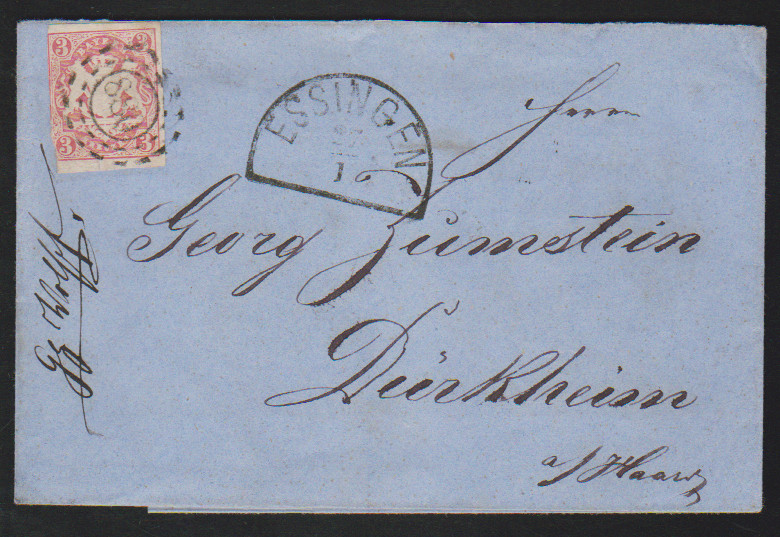 3 3
3 3
ESSINGEN
27
1
Herrn
Georg Zumstein
Dürkheim
a/Haardt
Wolff